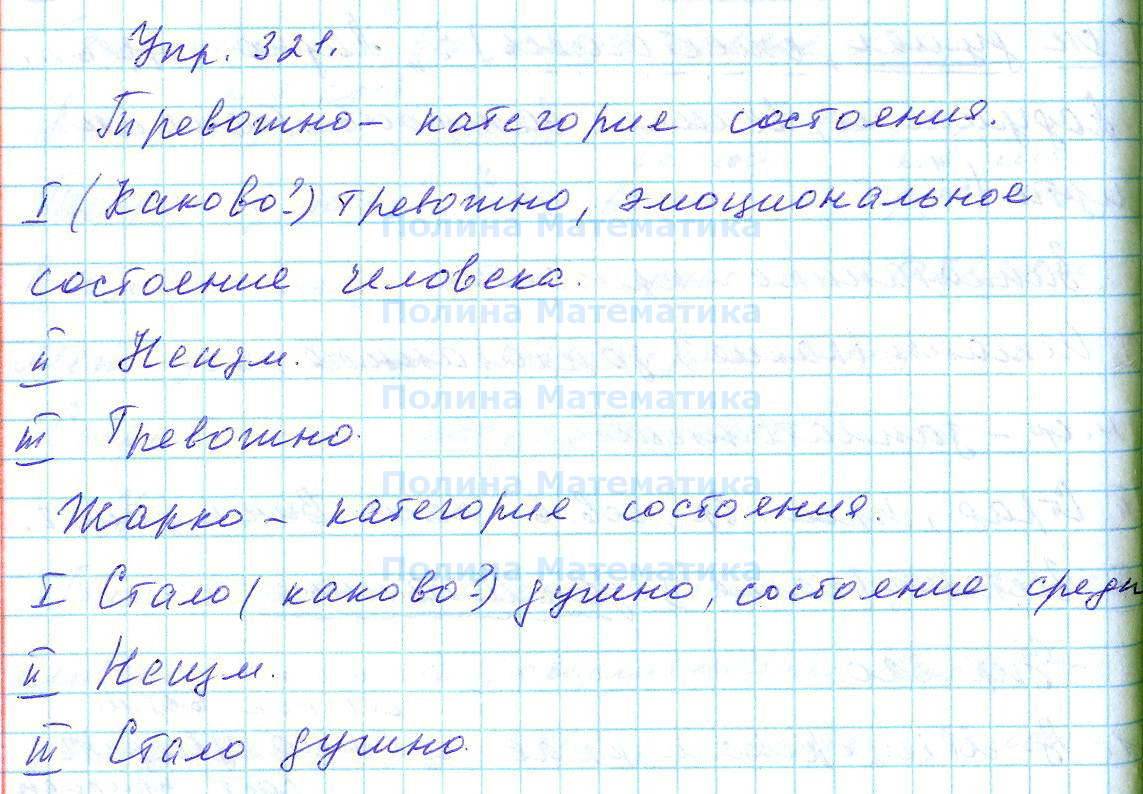 Упр. 321.
Тревожно – категория состояния.
I (Каково?) тревожно, эмоциональное
Полина Математика
состояние человека.
Полина Математика
II Неизм.
Полина Математика
III Тревожно.
Полина Математика
Жарко – категория состояния.
Полина Математика
I Стало (каково?) душно, состояние среды
II Неизм.
III Стало душно.